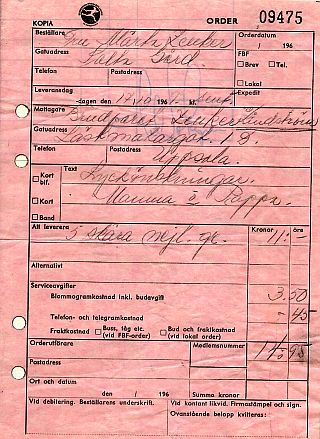 KOPIA
ORDER 09475
Beställare
Fru Märta Zeuker
Orderdatum
/ 196
Gatuadress
FBF
Brev Tel.
Telefon Postadress
Lokal
Leveransdag
Expedit
-dagen den 196
Mottagare
Brudparet
Gatuadress
19.
Telefon Postadress
Uppsala
Kort bif.
Text
Lyckönskningar.
Kort
Mamma o Pappa.
Band
Att leverera
Kronor öre
5 skära nejl.
11:-
Alternativt
Serviceavgifter
Blommogramkostnad inkl. budavgift
3.50
Telefon- och telegramkostnad
-45
Fraktkostnad
Buss, tåg etc. (vid FBF-order)
Bud och fraktkostnad (vid lokal order)
Orderutförare
Medlemsnummer
14.95
Postadress
Ort och datum
/ 196
Summa kronor
Vid debitering. Beställarens underskrift.
Vid kontant likvid. Firmastämpel och sign.
Ovanstående belopp kvitteras: